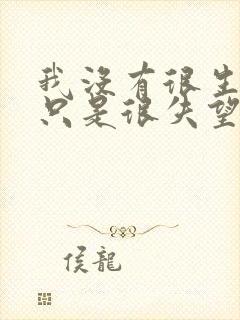 我沒有很生
只是很失望
侯龍